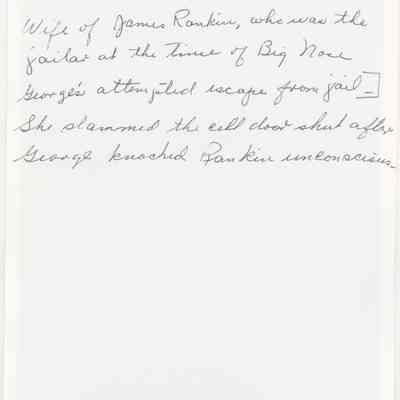 Wife of James Rankin, who was the
jailar at the time of Big Nose
George's attempted escape from jail_]
She slammed the cell door shut after
George knocked Rankin unconscious_